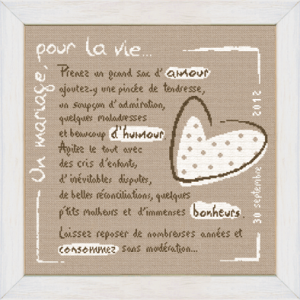 Un mariage,
pour la vie...
Prenez un grand sac d'amour
ajoutez-y une pincée de tendresse,
un soupçon d'admiration,
quelques maladresses
et beaucoup d'humour.
Agitez le tout avec
des cris d'enfants,
d'inévitables disputes,
de belles réconciliations, quelques
p'tits malheurs et d'immenses bonheurs.
Laissez reposer de nombreuses années et
consommez sans modération...
30 septembre 2012